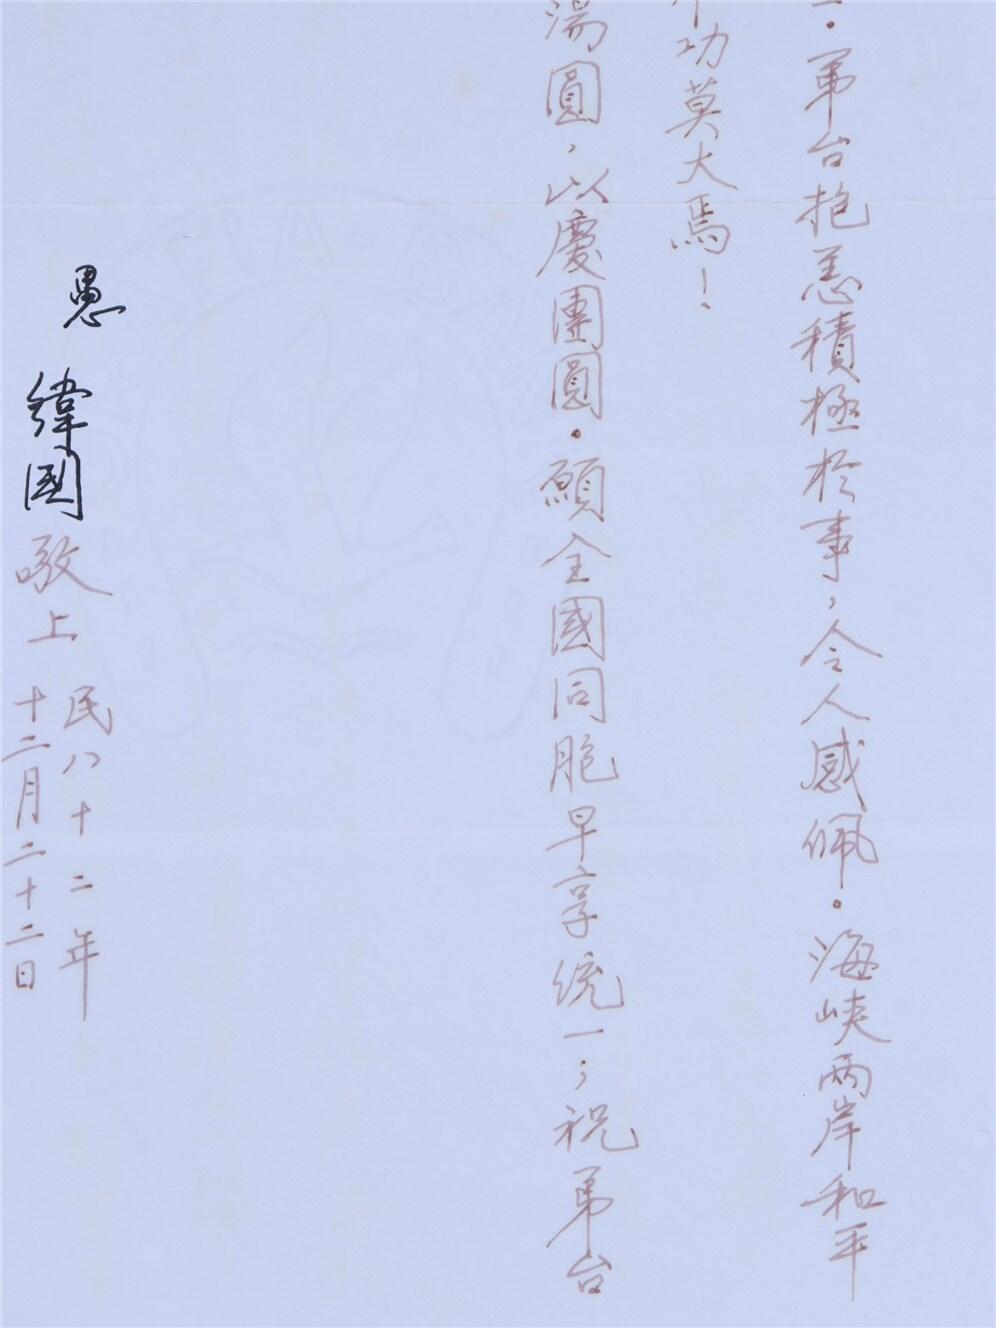 弟台抱恙積極於事，令人感佩。海峽兩岸和平
功莫大焉！
湯圓，以慶團圓。願全國同胞早享統一；祝弟台
愚 緯國敬上 民八十二年
十二月二十二日